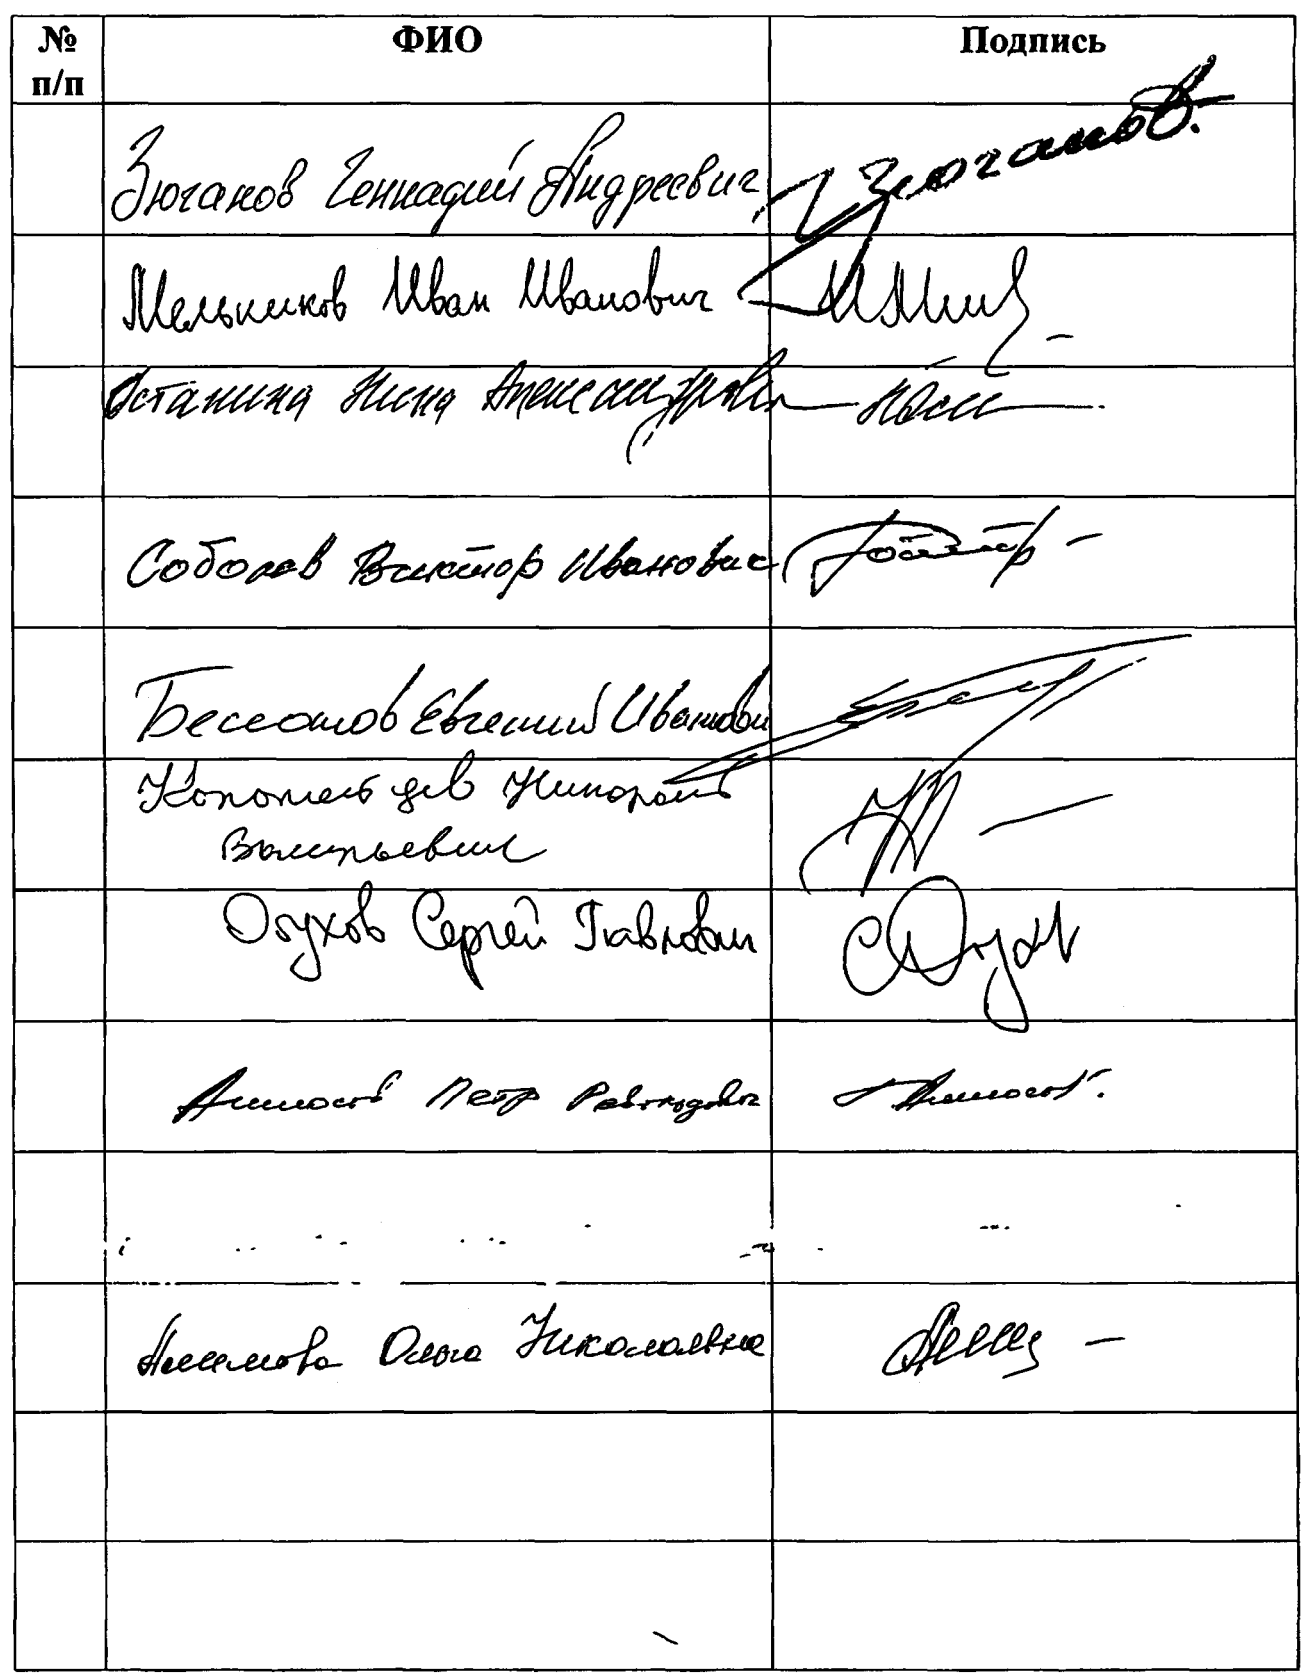 № п/п ФИО Подпись
Зюганов Геннадий Андреевич Зюганов.
Мельников Иван Иванович
Останина Нина Александровна
Соболев Виктор Иванович
Бессонов Евгений Иванович
Коломейцев Николай
Васильевич
Обухов Сергей Павлович
Аммосов Петр Револьдович Аммосов.
Алимова Ольга Николаевна